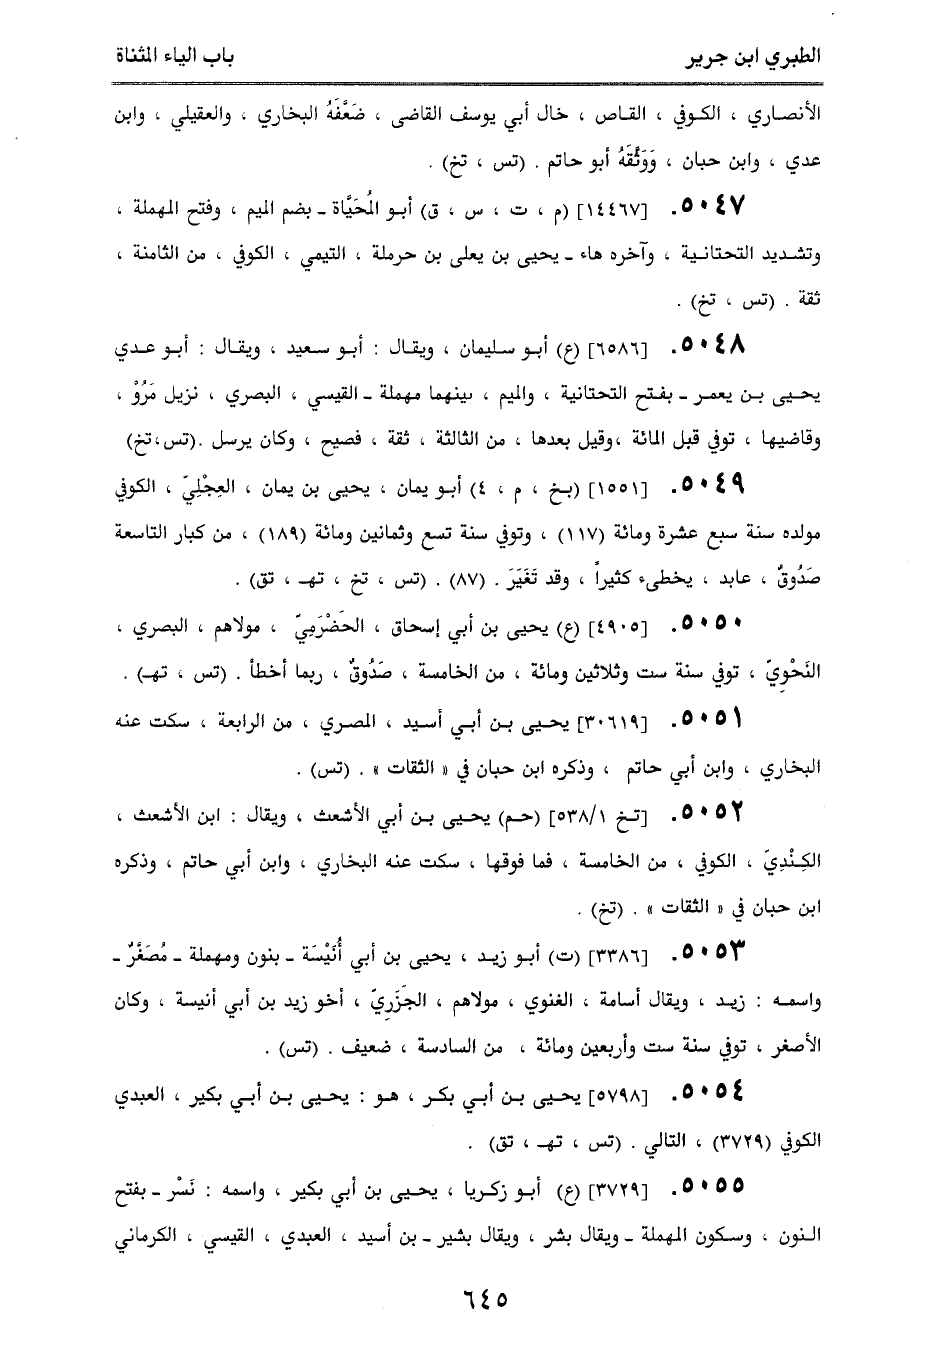 الطبري ابن جرير
باب الياء المثناة
الأنصاري ، الكوفي ، القاص ، خال أبي يوسف القاضى ، ضَعَّفَهُ البخاري ، والعقيلي ، وابن
عدي ، وابن حبان ، وَوَثَّقَهُ أبو حاتم . (تس ، تخ) .
٥٠٤٧. [١٤٤٦٧] (م ، ت ، س ، ق) أبـو المُحَيَّاة ـ بضم الميم ، وفتح المهملة ،
وتشديد التحتانية ، وآخره هاء ـ يحيى بن يعلى بن حرملة ، التيمي ، الكوفي ، من الثامنة ،
ثقة . (تس ، تخ) .
٥٠٤٨. [٦٥٨٦] (ع) أبو سليمان ، ويقال : أبـو سعيد ، ويقال : أبـو عـدي
يحـيى بـن يعمـر ـ بفتح التحتانية ، والميم ، بينهما مهملة ـ القيسي ، البصري ، نزيل مَرُوْ ،
وقاضيها ، توفي قبل المائة ،وقيل بعدها ، من الثالثة ، ثقة ، فصيح ، وكان يرسل .(تس،تخ)
٥٠٤٩. [١٥٥١] (بخ ، م ، ٤) أبـو يمان ، يحيى بن يمان ، العِجْلِيّ ، الكوفي
مولده سنة سبع عشرة ومائة (١١٧) ، وتوفي سنة تسع وثمانين ومائة (١٨٩) ، من كبار التاسعة
صَدُوقٌ ، عابد ، يخطىء كثيراً ، وقد تَغَيَرَ . (٨٧) . (تس ، تخ ، تهـ ، تق) .
٥٠٥٠. [٤٩٠٥] (ع) يحيى بن أبي إسحاق ، الحَضْرَمِيّ ، مولاهم ، البصري ،
النَحْوِيّ ، توفي سنة ست وثلاثين ومائة ، من الخامسة ، صَدُوقٌ ، ربما أخطأ . (تس ، تهـ) .
٥٠٥١. [٣٠٦١٩] يحيى بـن أبـي أسيد ، المصري ، من الرابعة ، سكت عنه
البخاري ، وابن أبي حاتم ، وذكره ابن حبان في « الثقات » . (تس) .
٥٠٥٢. [تـخ ٥٣٨/١] (حـم) يحيـى بـن أبي الأشعث ، ويقال : ابن الأشعث ،
الكِنْدِيّ ، الكوفي ، من الخامسة ، فما فوقها ، سكت عنه البخاري ، وابن أبي حاتم ، وذكره
ابن حبان في « الثقات » . (تخ) .
٥٠٥٣. [٣٣٨٦] (ت) أبو زيـد ، يحيى بن أبي أُنَيْسَة ـ بنون ومهملة ـ مُصَغَّرٌ ـ
واسمـه : زيـد ، ويقال أسامة ، الغنوي ، مولاهم ، الجَزَرِيّ ، أخو زيد بن أبي أنيسة ، وكان
الأصغر ، توفي سنة ست وأربعين ومائة ، من السادسة ، ضعيف . (تس) .
٥٠٥٤. [٥٧٩٨] يحيـى بـن أبـي بكـر ، هـو : يحيـى بـن أبـي بكير ، العبدي
الكوفي (٣٧٢٩) ، التالي . (تس ، تهـ ، تق) .
٥٠٥٥. [٣٧٢٩] (ع) أبـو زكـريا ، يحيـى بـن أبـي بكير ، واسمه : نَسْر ـ بفتح
الـنون ، وسـكون المهملة ـ ويقال بشر ، ويقال بشير ـ بن أسيد ، العبدي ، القيسي ، الكرماني
٦٤٥